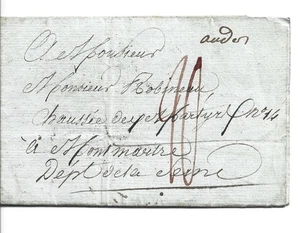 andes
A Monsieur
Monsieur Robineau,
chaussée des Martyrs N° 14
à Montmartre
Dept de la Seine